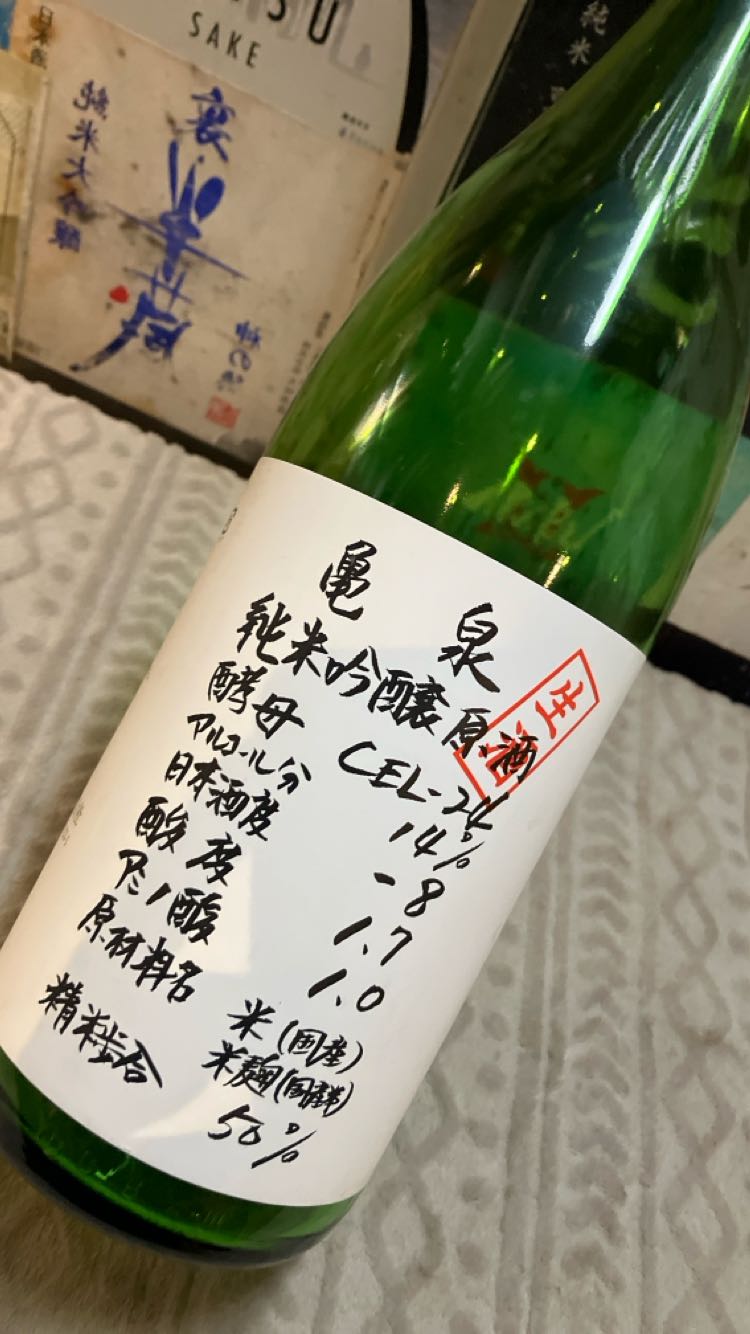 SAKE
純米大吟醸
裏
純米
亀泉
純米吟醸原酒
生酒
酵母 CEL-24
アルコール分 14%
日本酒度 -8
酸度 1.7
アミノ酸 1.0
原材料名 米(国産)
米麹(国産米)
精米歩合 50%